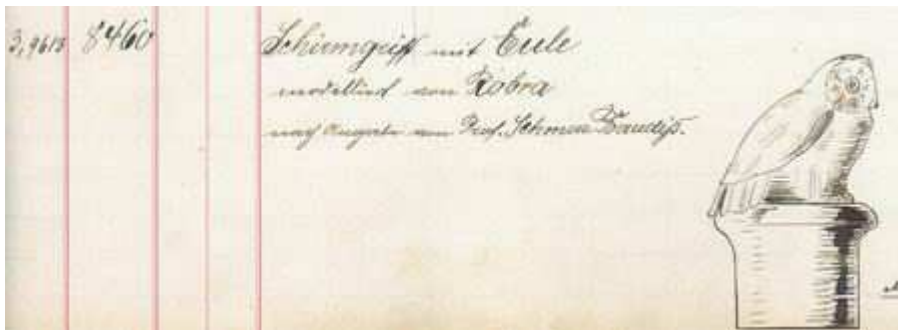 3,9613 8460 Schirmgriff mit Eule
modelliert von Robra
nach Angabe von Prof. Schmuz Baudiß.